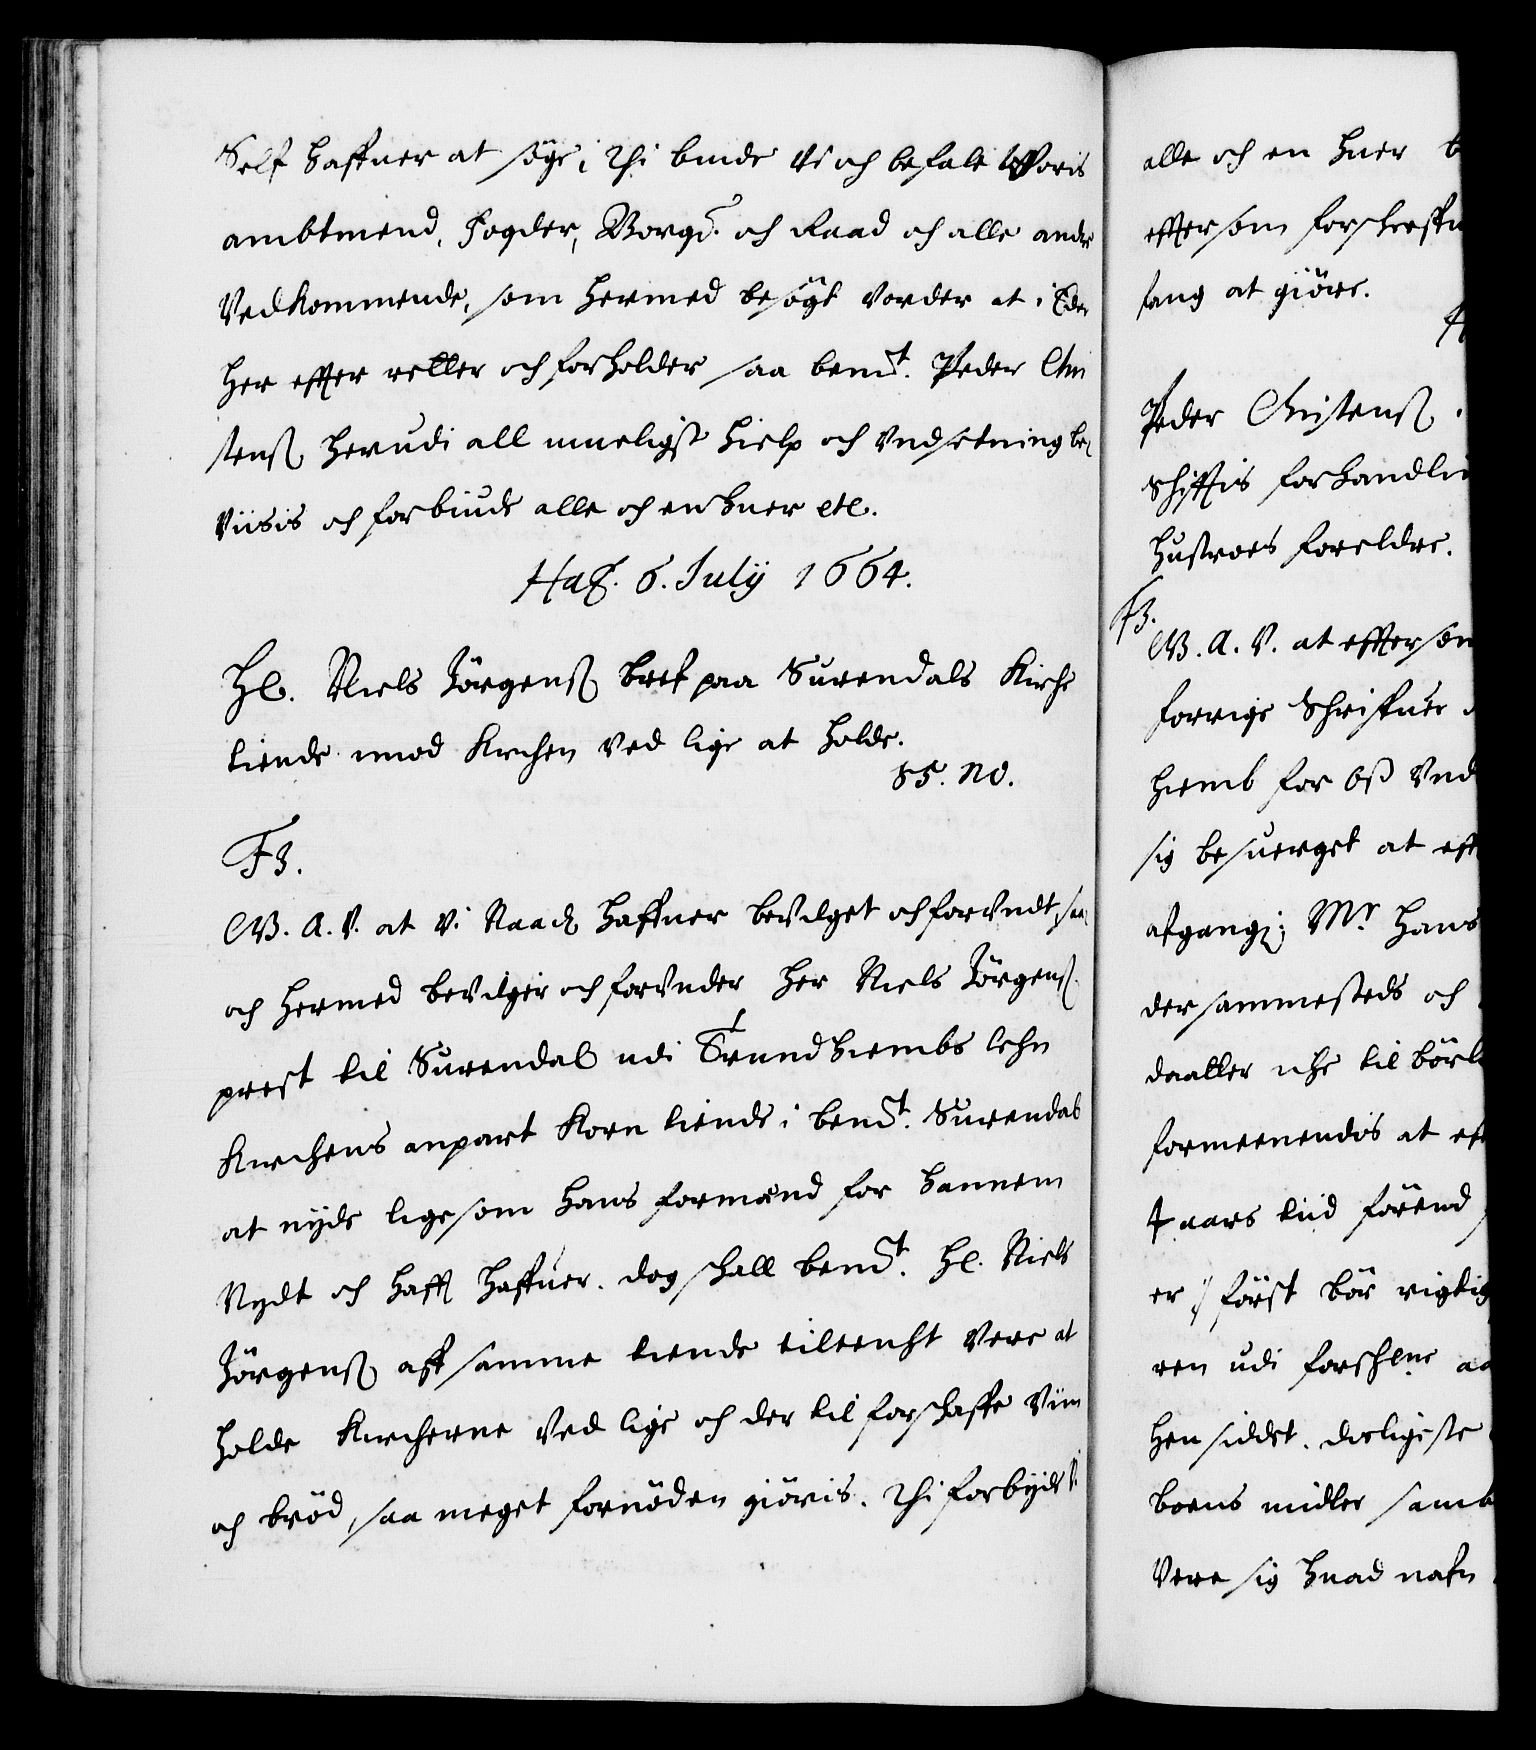 Self haffuer at söge; Thi bede Vi och befale Woris
ambtmend, Fogder, Borge: och Raad och alle andre
Vedkommende, som hermed besögt vorder at i Eder
her effter retter och forholder saa bemt. Peder Chri
stenß herudi all mueligst hielp och Vndsetning be
viisis och forbiude alle och enhuer etc.
Haf. 6. Julij 1664.
Hl. Niels Jörgenß bref paa Surendals Kirche
tiende mod Kirchen ved lige at holde.
85. No.
F3.
G. A. V. at Vi Naad haffuer bevilget och forundt, saa
och hermed bevilger och forunder Her Niels Jörgenß
prest til Surendal udi Trundhiembs lehn
Kirchens anpart Korn tiende i bemt. Surendal
at nyde lige som hans formænd for hannem
Nydt och haft haffuer. dog schall bemt. Hl. Niels
Jörgenß aff samme tiende tiltencht Vere at
holde Kircherne Ved lige och der til forschaffe Viin
och bröd, saa meget fornöden giöris. Thi forbyde Vi
alle och en huer
effter som forschreffu
fang at giöre.
Peder Christenß
Schifftis forhandli
hustroes foreldre.
F3.
G. A. V. at effter som
forrige Schriffuer
hiemb for Oß Vnd
sig besuerget at eff
afgangne Mr. Hans
der sammesteds och
daatter iche til börl
formeenendis at eff
4 aars tiid förend
er först bör rigtig
ren udi forschrne aa
hen siddet. desligeste
boens midler samb
Vere sig huad nafn